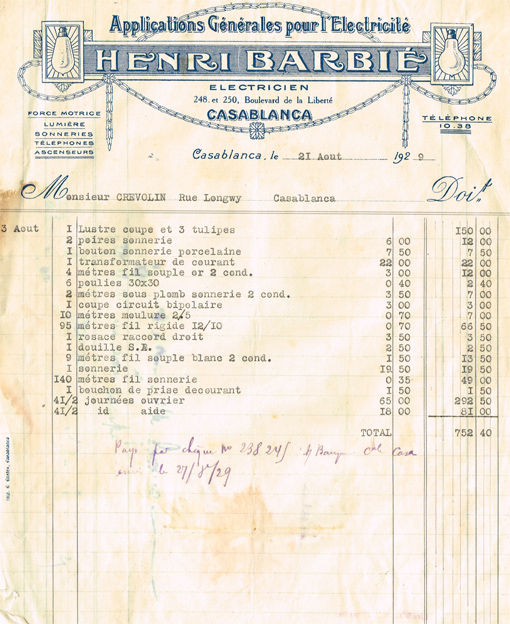 Applications Générales pour l'Electricité
HENRI BARBIÉ
ELECTRICIEN
248. et 250, Boulevard de la Liberté
CASABLANCA
FORCE MOTRICE
LUMIÈRE
SONNERIES
TÉLÉPHONES
ASCENSEURS
TÉLÉPHONE
10.38
Casablanca, le 21 Aout 1929
Monsieur CREVOLIN Rue Longwy Casablanca Doit
3 Aout I Lustre coupe et 3 tulipes 150 00
2 poires sonnerie 6 00 12 00
I bouton sonnerie porcelaine 7 50 7 50
I transformateur de courant 22 00 22 00
4 métres fil souple or 2 cond. 3 00 12 00
6 poulies 30x30 0 40 2 40
2 métres sous plomb sonnerie 2 cond. 3 50 7 00
I coupe circuit bipolaire 3 00 3 00
10 métres moulure 2/5 0 70 7 00
95 métres fil rigide 12/10 0 70 66 50
I rosace raccord droit 3 50 3 50
I douille S.E. 2 50 2 50
9 métres fil souple blanc 2 cond. I 50 13 50
I sonnerie 19 50 19 50
140 métres fil sonnerie 0 35 49 00
I bouchon de prise decourant I 50 I 50
4I/2 journées ouvrier 65 00 292 50
4I/2 id aide 18 00 81 00
TOTAL 752 40
Payé par chèque No 238245 Casa
le 27/8/29